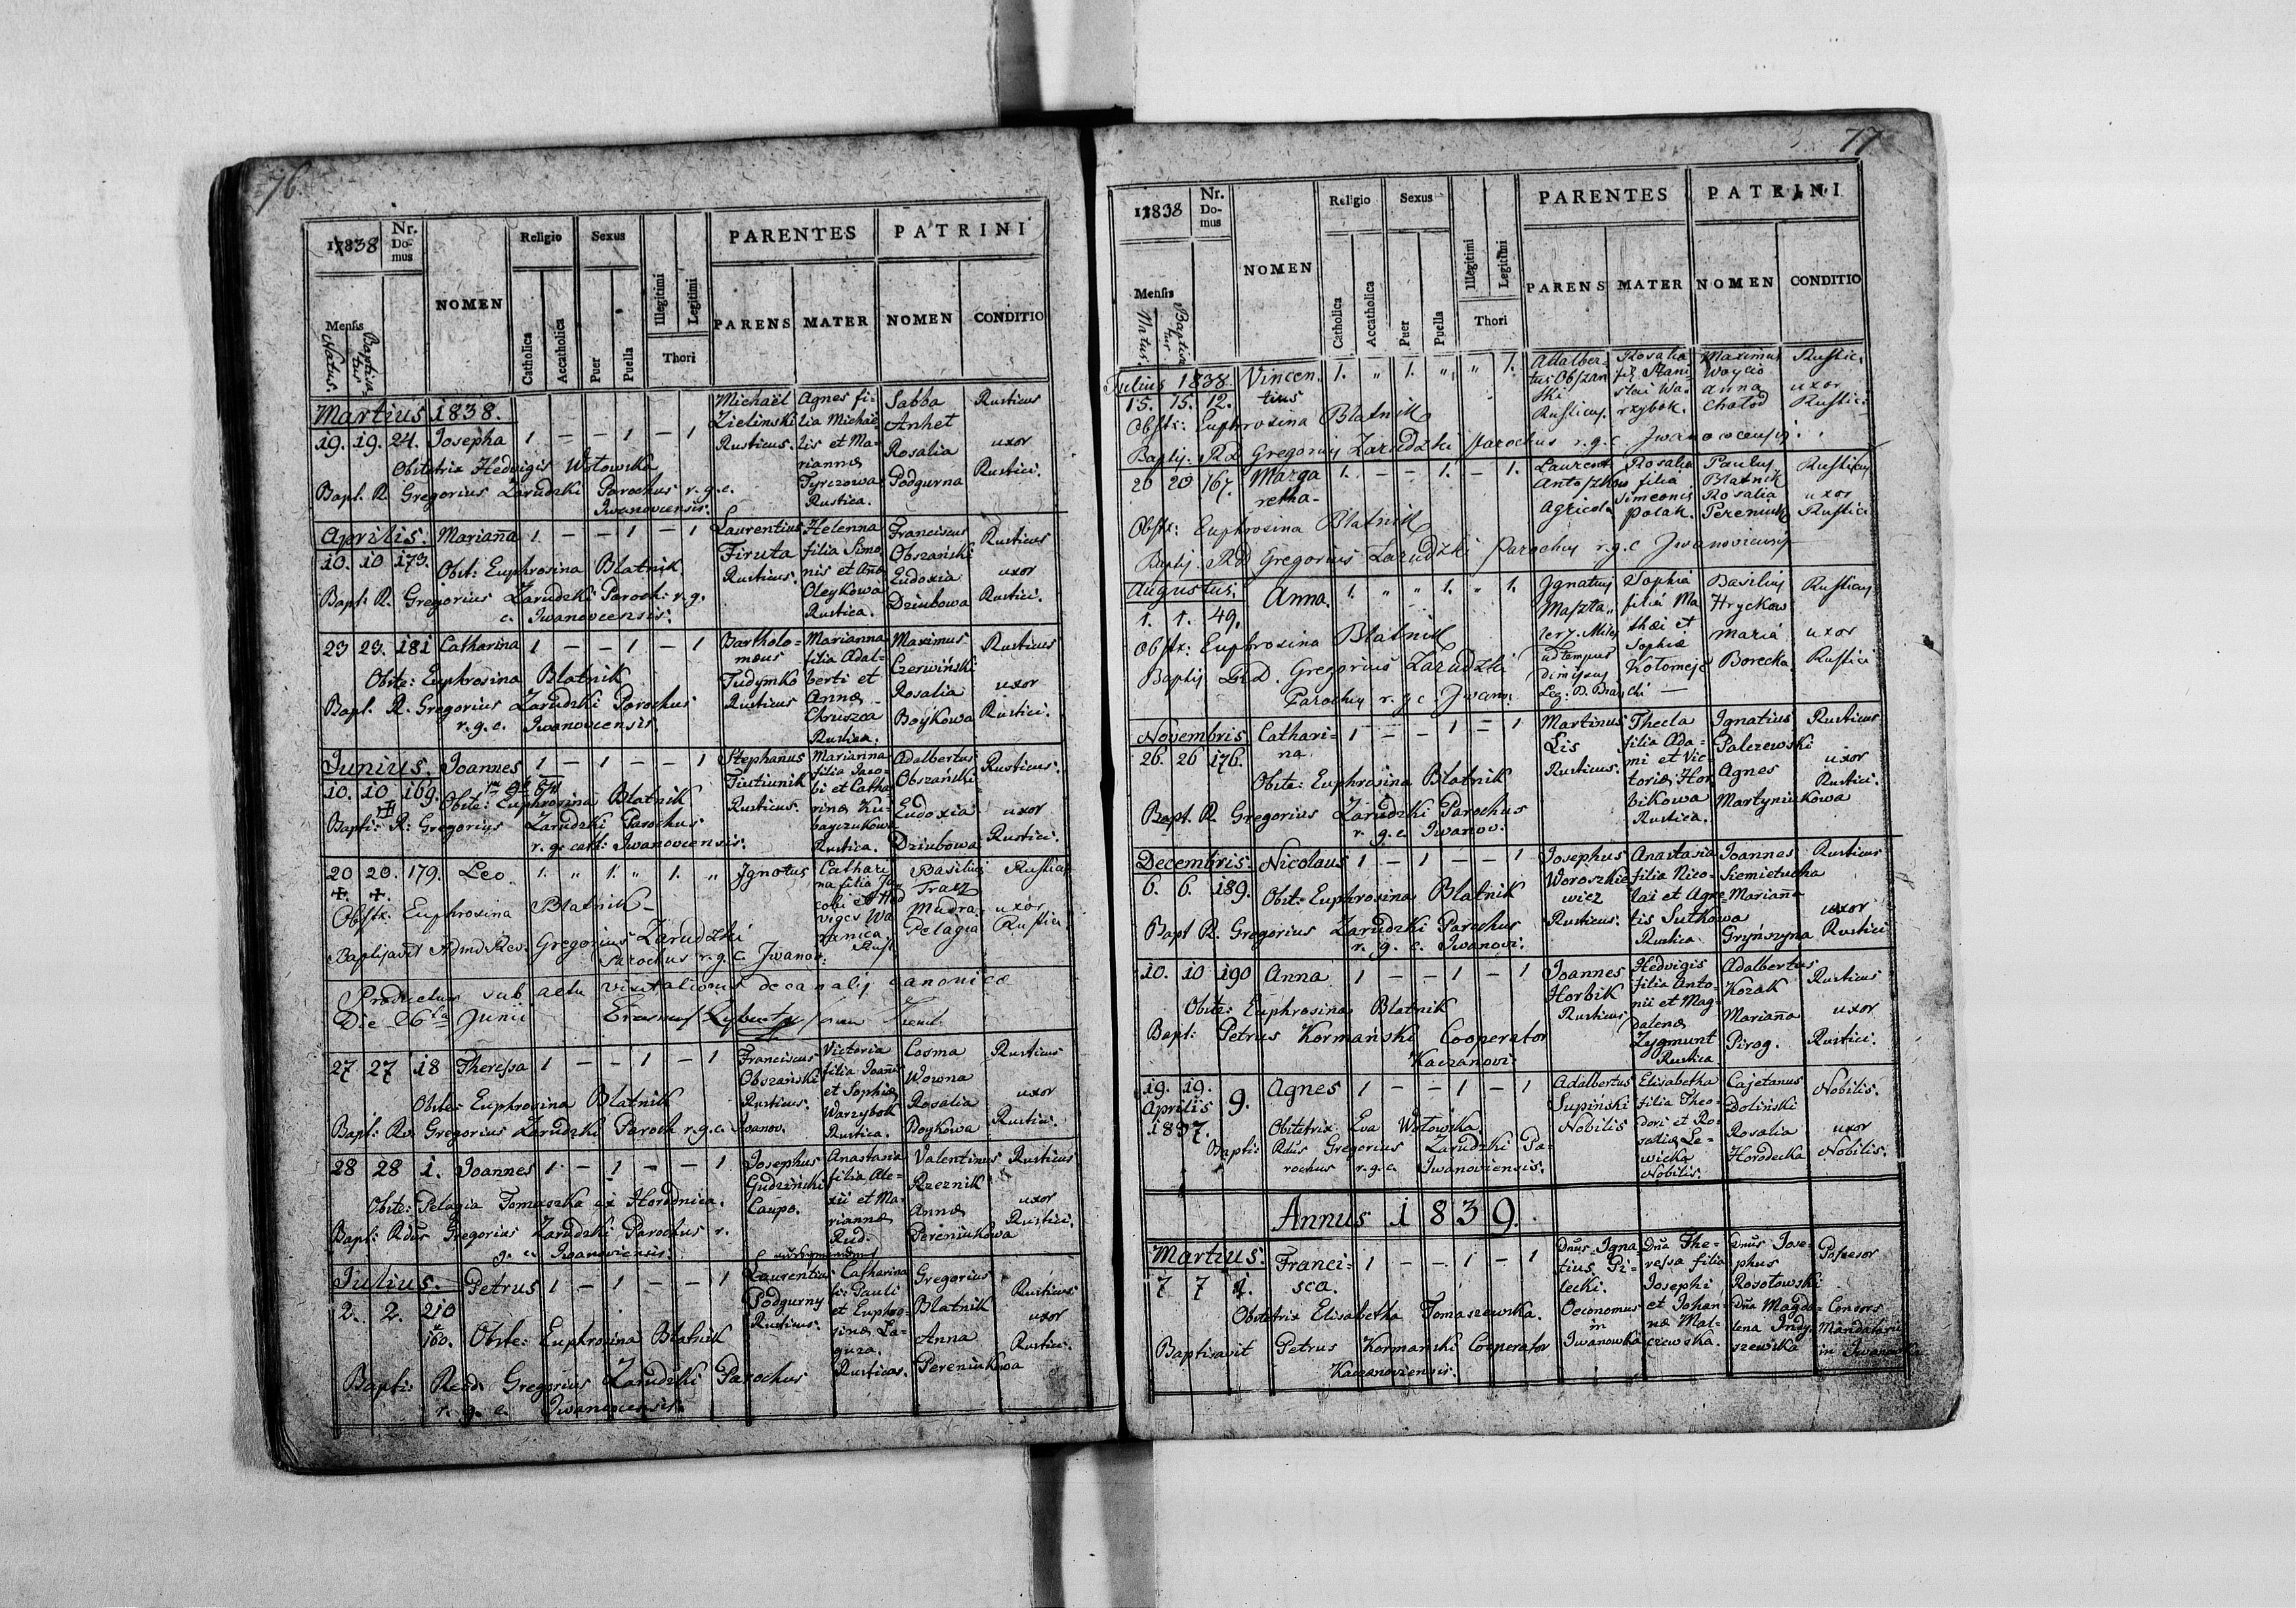 76.
1838
Nr. Domus
NOMEN
Religio
Sexus
PARENTES
PATRINI
Mensis
Natus.
Baptisatus
Catholica
Accatholica
Puer
Puella
Illegitimi
Legitimi
Thori
PARENS
MATER
NOMEN
CONDITIO
Martius 1838.
19. 19. 24. Josepha 1 — — 1 — 1
Michaël Zielinski Rusticus.
Agnes filia Michaëlis et Mariannæ Tyrczowa Rustica.
Sabba Anhet
Rosalia Podgurna
Rusticus
uxor Rustici.
Obstetrix Hedvigis Wołowska
Bapt. R. Gregorius Zarudzki Parochus r. g. c. Iwanovcensis.
Aprilis.
10. 10 173. Marianna 1 — — 1 — 1
Laurentius Firuta Rusticus.
Helenna filia Simonis et Annæ Oleykowa Rustica.
Franciscus Obszański
Eudoxia Dziubowa
Rusticus
uxor Rustici.
Obst: Euphrosina Blatnik
Bapt. R. Gregorius Zarudzki Paroch: r. g. c. Iwanovcensis.
23 23. 181 Catharina 1 — — 1 — 1
Bartholomæus Tudymko Rusticus
Marianna filia Adalberti et Annæ Chruszca Rustica.
Maximus Czerwiński
Rosalia Boykowa
Rusticus
uxor Rustici.
Obste: Euphrosina Blatnik
Bapt. R. Gregorius Zarudzki Parochus r. g. c. Iwanovcensis
Junius.
10. 10 169. Joannes 1 — 1 — — 1
Stephanus Tiutiunik Rusticus.
Marianna filia Jacobi et Catharinæ Kubayczukowa Rustica.
Adalbertus Obszański
Eudoxia Dziubowa
Rusticus.
uxor Rustici.
Obste: Euphrosina Blatnik
Bapti: R: Gregorius Zarudzki Parochus r. g. cath: Iwanovcensis.
20 20. 179. Leo 1. „ 1. „ 1. „
Ignotus
Catharina filia Jacobi et Hedviges Waranica. Rust.
Basilius Tracz
Mudra Pelagia
Rusticus
uxor Rustici
Obstx. Euphrosina Blatnik —
Baptisavit Admd. Rev. Gregorius Zarudzki Parochus r. g. c. Jwanov:
Productum sub actu visitationis decanalis canonicæ
Die 26ta Junii
27 27 18 Theressa 1 — — 1 — 1
Franciscus Obszański Rusticus.
Victoria filia Joannis et Sophiæ Warzybok Rustica.
Cosma Wowna
Rosalia Boykowa
Rusticus
uxor Rustici.
Obste: Euphrosina Blatnik
Bapt: Rv: Gregorius Zarudzki Paroch r. g. c. Iwanov.
28 28 1. Joannes 1 — 1 — — 1
Josephus Gudziński Caupo.
Anastasia filia Alexii et Mariannæ Rud.
Valentinus Rzeznik
Anna Pereniukowa
Rusticus
uxor Rustici.
Obste: Pelagia Tomaszka ex Horodnica.
Bapt: Rdus Gregorius Zarudzki Parochus r. g. c. Iwanoviensis.
Julius.
2. 2. 210 160. Petrus 1 — 1 — — 1
Laurentius Podgurny Rusticus.
Catharina fi: Pauli et Euphrosinæ Laguza. Rusticas.
Gregorius Blatnik
Anna Pereniukowa
Rusticus
uxor Rustici.
Obste: Euphrosina Blatnik
Bapti: Resd. Gregorius Zarudzki Parochus r. g. c. Iwanovcensis.
77
1838
Nr. Domus
NOMEN
Religio
Sexus
PARENTES
PATRINI
Mensis
Natus
Baptisatus
Catholica
Accatholica
Puer
Puella
Illegitimi
Legitimi
Thori
PARENS
MATER
NOMEN
CONDITIO
Julius 1838.
15. 15. 12. Vincentius 1. „ 1. „ „ 1.
Adalbertus Obszanski Rusticus.
Rosalia fi: Stanislai Warzybok.
Maximus Woycio
Anna Chołod
Rustic.
uxor Rustic:
Obstx: Euphrosina Blatnik
Baptis. RD Gregorius Zarudzki Parochus r. g. c. Jwanowcensis.
20 20 167. Margaretha 1. — — 1. — 1.
Laurent. Antoszkow Agricola
Rosalia filia Simeonis Polak.
Paulus Blatnik
Rosalia Pereniuk
Rusticus
uxor Rustici
Obstx: Euphrosina Blatnik
Baptis. RD Gregorius Zarudzki Parochus r. g. c Jwanovicensis
Augustus.
1. 1. 49. Anna. 1. „ „ 1. „ 1.
Ignatius Maszta„lerz. Miles ad tempus dimissus
Sophia filia Mathæi et Sophiæ Kołomejchi —
Basilius Hryckow
Maria Borecka
Rusticus
uxor Rustici
Obstx: Euphrosina Blatnik
Baptis RD. Gregorius Zarudzki Parochus r. g. c. Jwano:
Novembris
26. 26 176. Catharina 1 — — 1 — 1
Martinus Lis Rusticus.
Thecla filia Adami et Victoriæ Horbikowa Rustica.
Ignatius Palczewski
Agnes Martyniukowa
Rusticus
uxor Rustici.
Obste: Euphrosina Blatnik
Bapt. R. Gregorius Zarudzki Parochus r. g. c. Iwanov.
Decembris.
6. 6. 189. Nicolaus 1 — 1 — — 1
Josephus Woroszkiewicz Rusticus.
Anastasia filia Nicolai et Agnetis Sutkowa Rustica
Joannes Siemietucha
Marianna Gryńszyna
Rusticus
uxor Rustici
Obst: Euphrosina Blatnik
Bapt R. Gregorius Zarudzki Parochus r. g. c. Iwanovi.
10. 10 190 Anna 1 — — 1 — 1
Joannes Horbik Rusticus
Hedvigis filia Antonii et Magdalenæ Zygmunt Rustica
Adalbertus Kozak
Marianna Pirog.
Rusticus
uxor Rustici.
Obste: Euphrosina Blatnik
Bapt: Petrus Kormański Cooperator Kaczanovi:
19. 19. Aprilis 1837. 9. Agnes 1 — — 1 — 1
Adalbertus Supiński Nobilis
Elisabetha filia Theodori et Rosaliæ Lewicka Nobilis.
Cajetanus Doliński
Rosalia Horodecka
Nobilis.
uxor Nobilis.
Obstetrix Eva Wołowska
Bapti: Rdus Gregorius Zarudzki Parochus r. g. c. Iwanoviensis.
Annus 1839.
Martius.
7 7 1. Francisca. 1 — — 1 — 1
Dnus Ignatius Pilecki. Oeconomus in Iwanowka
Dna Theressa filia Josephi et Johannæ Malczewska.
Dnus Josephus Rosołowski
Dna Magdalena Indyszewska
Possesor
Consors Mandatarii in Iwanowka
Obstetrix Elisabetha Tomaszewska.
Baptisavit Petrus Kormański Cooperator Kaczanoviensis.